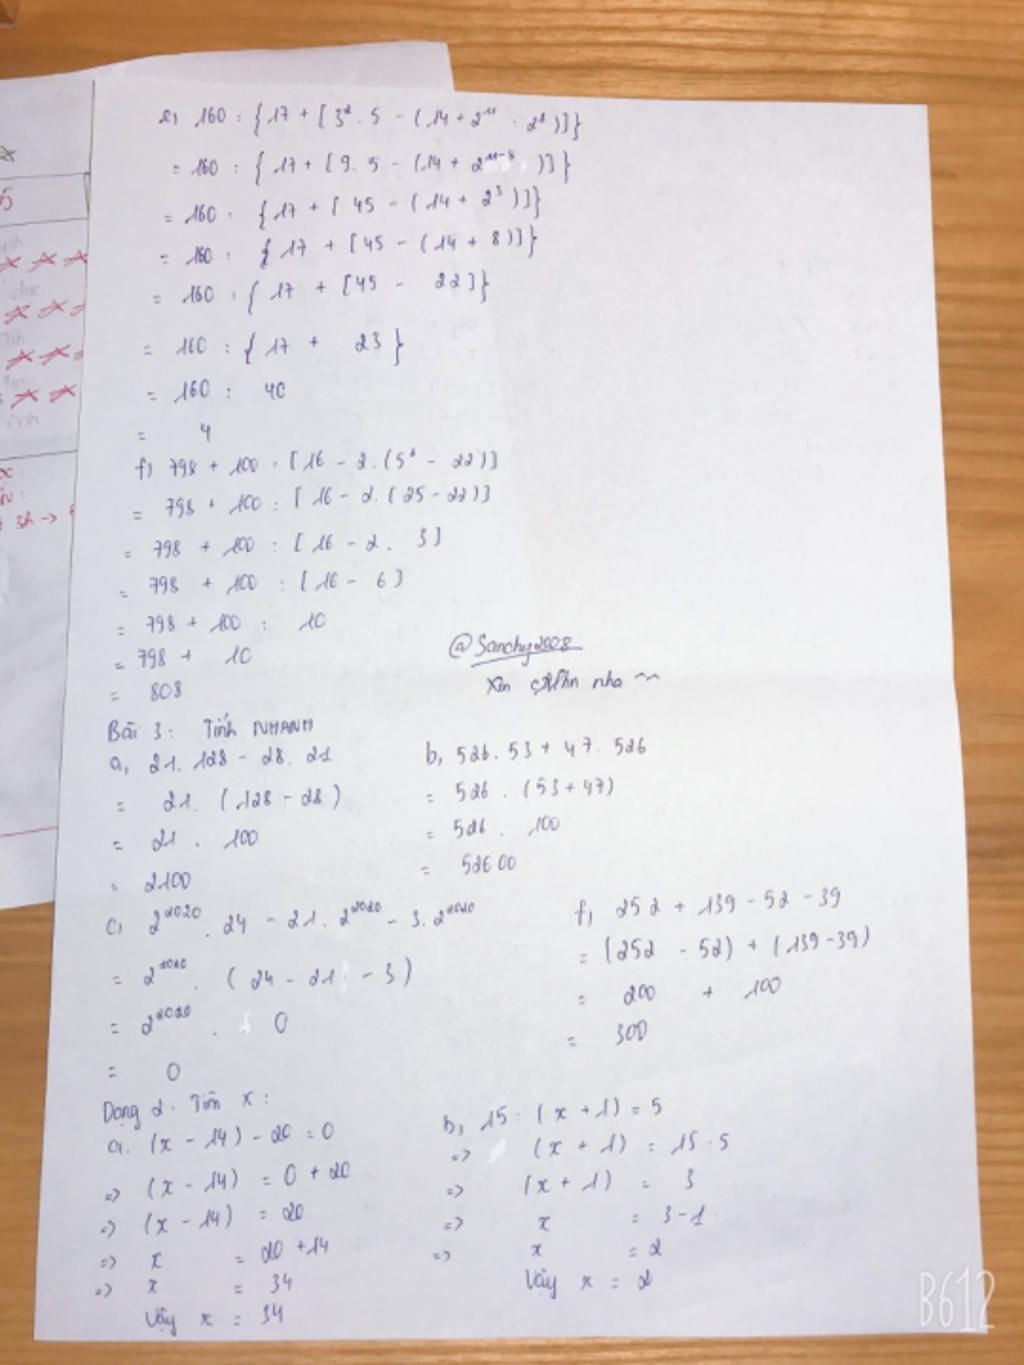 e, 160 : {17 + [3² . 5 - (14 + 2¹¹ : 2⁸)]}
= 160 : {17 + [9 . 5 - (14 + 2¹¹⁻⁸)]}
= 160 : {17 + [45 - (14 + 2³)]}
= 160 : {17 + [45 - (14 + 8)]}
= 160 : {17 + [45 - 22]}
= 160 : {17 + 23}
= 160 : 40
= 4
f, 798 + 100 : [16 - 2.(5² - 22)]
= 798 + 100 : [16 - 2.(25 - 22)]
= 798 + 100 : [16 - 2 . 3]
= 798 + 100 : [16 - 6]
= 798 + 100 : 10
= 798 + 10
= 808
@Sanchy2008
Xin nha ~~
Bài 3: Tính NHANH
a, 21. 128 - 28. 21
= 21. (128 - 28)
= 21 . 100
= 2100
b, 526. 53 + 47. 526
= 526 . (53 + 47)
= 526 . 100
= 52600
c, 2²⁰²⁰ . 24 - 21. 2²⁰²⁰ - 3. 2²⁰²⁰
= 2²⁰²⁰ . (24 - 21 - 3)
= 2²⁰²⁰ . 0
= 0
f, 252 + 139 - 52 - 39
= (252 - 52) + (139 - 39)
= 200 + 100
= 300
Dạng 2. Tìm x:
a. (x - 14) - 20 = 0
=> (x - 14) = 0 + 20
=> (x - 14) = 20
=> x = 20 + 14
=> x = 34
Vậy x = 34
b, 15 : (x + 1) = 5
=> (x + 1) = 15 : 5
=> (x + 1) = 3
=> x = 3 - 1
=> x = 2
Vậy x = 2
B612